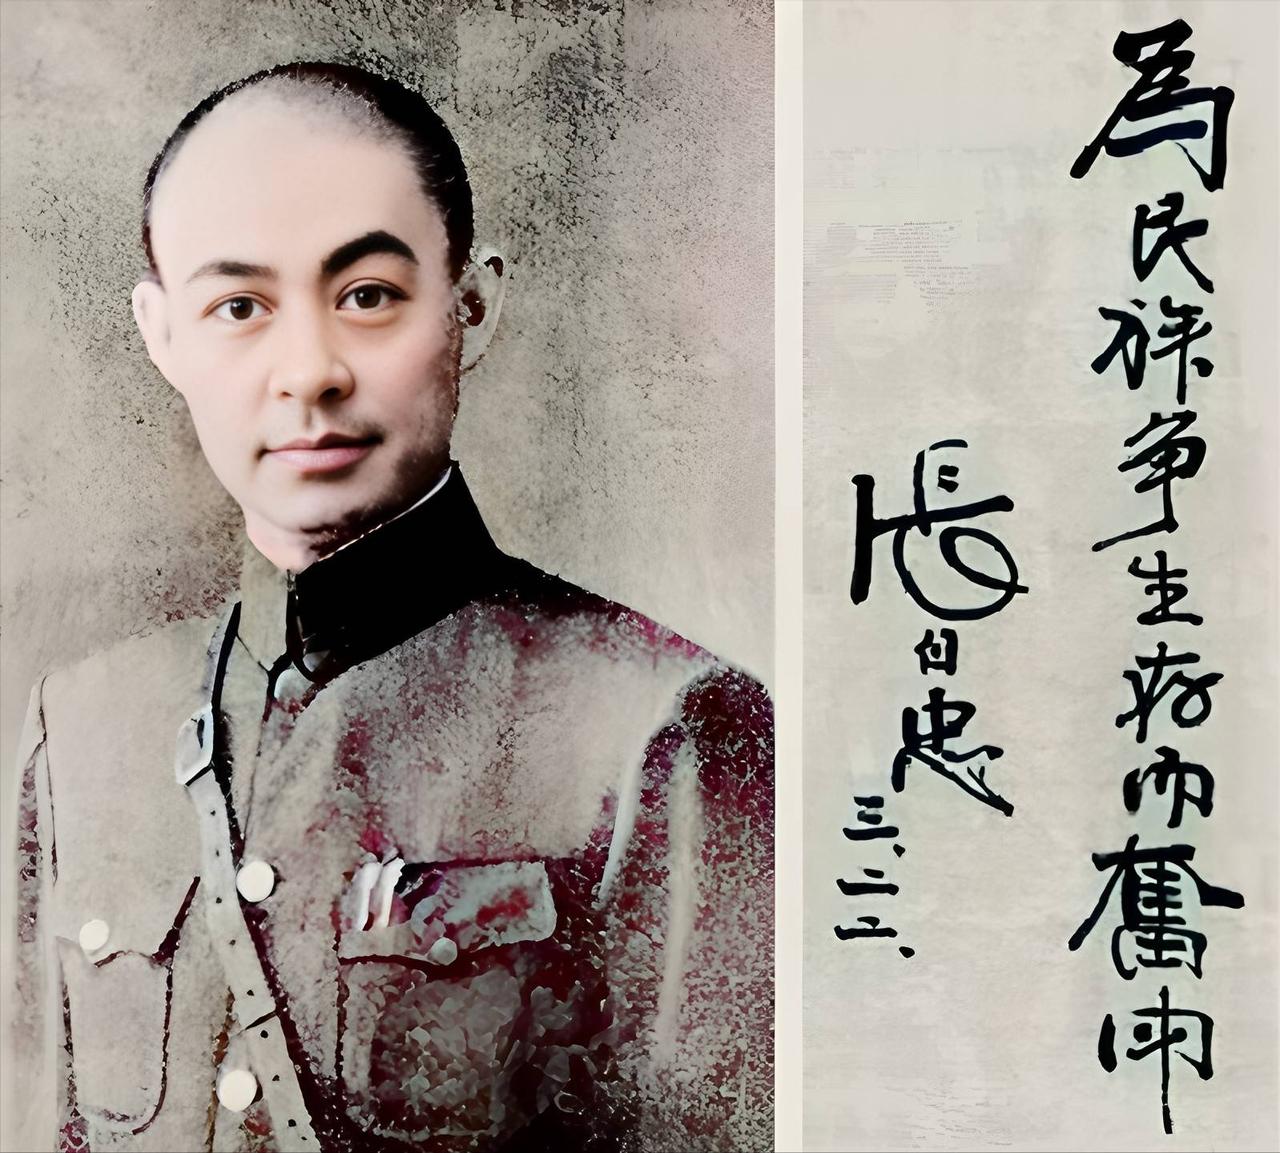 為民族争生存而奮鬥
張自忠
三、二二、